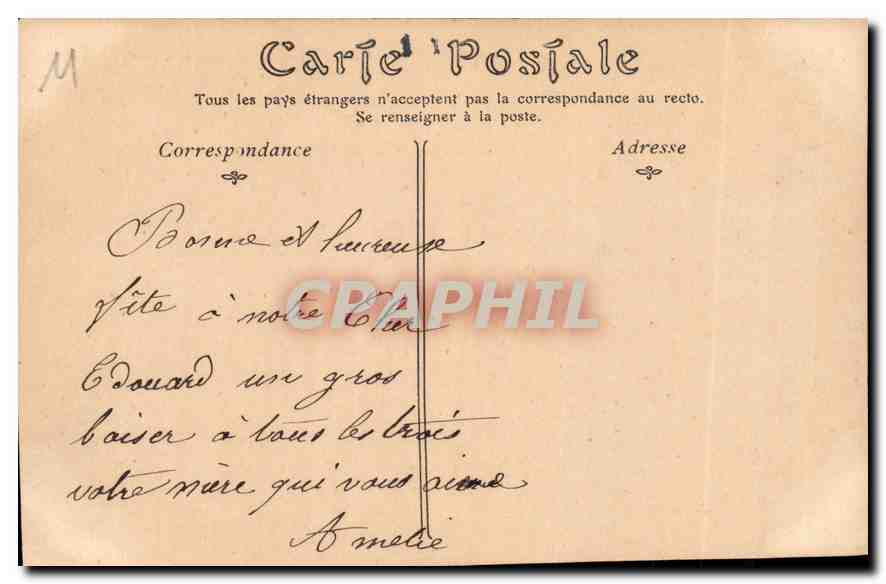 M
Carte Postale
Tous les pays étrangers n'acceptent pas la correspondance au recto.
Se renseigner à la poste.
Correspondance
Adresse
Bonne et heureuse
fête à notre Cher
CPAPHIL
Edouard un gros
baiser à tous les trois
votre mère qui vous aime
Amelie